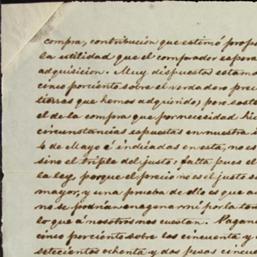 compra, contribución que estimó propo
la utilidad que el comprador espera
adquisicion. Muy dispuestos estamo
cinco porciento sobre el verdadero prec
tierras que hemos adquirido; pero soste
el de la compra que por necesidad hic
circunstancias expuestas en nuestra
6 de Mayo é indicadas en esta, no es
sino el triple del justo: falta pues el
la ley, porque el precio no es el justo s
mayor, y es una prueba de ello el que a
no se podrian enagenar ni por la tan
lo que á nosotros nos cuestan. Pagan
cinco porciento sobre los cincuenta y
setecientos ochenta y dos pesos cincue